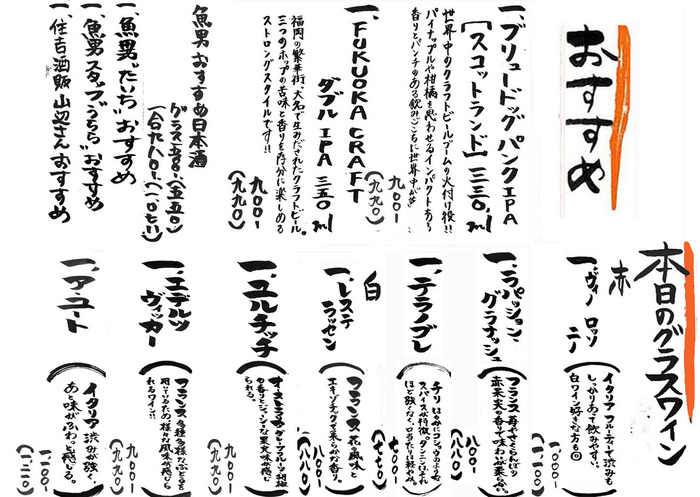 おすすめ
一、ブリュードッグパンクIPA
[スコットランド]三三〇ml
世界中のクラフトビールブームの火付け役!!
パイナップルや柑橘を思わせるインパクトある
香りとパンチのある飲みごたえに世界中が
九〇〇-
(九九〇)
一、FUKUOKA CRAFT
ダブルIPA 三五〇ml
福岡の繁華街、大名で生みだされたクラフトビール。
三つのホップの苦味と香りを存分に楽しめる
ストロングスタイルです!!
九〇〇-
(九九〇)
魚男おすすめ日本酒
グラス 五〇〇-(五五〇)
一、魚男“だいち”おすすめ
一、魚男スタッフ“うらら”おすすめ
一、住吉酒販 山辺さんおすすめ
本日のグラスワイン
赤
一、ヴィノ ロッソ
イタリア フルーティーで渋みも
しっかりあって飲みやすい。
白ワイン好きな方も◎
一〇〇〇-
(一一〇〇)
一、ラパッション・
グラナッシュ
フランス 苺やさくらんぼ
赤果実の香りで味わいが柔らか。
八〇〇-
(八八〇)
一、テラノブレ
チリ
スパイスが特徴。タンニンはそれ
ほど強くなく、口当たりは軽やか。
七〇〇-
(七七〇)
白
一、レステ
ラッセン
フランス 花の風味と
エキゾチックで柔らかな香り。
八〇〇-
(八八〇)
一、ユルチッチ
オーストリア グレープフルーツ、胡椒
の香りとジューシーな果実感が感じ
られる。
九〇〇-
(九九〇)
一、エデルツ
ヴィッカー
フランス 多種多様なぶどうを
用いているため様々な風味が感じ
れるワイン!!
九〇〇-
(九九〇)
一、ア・ユート
イタリア 渋みが強く、
あと味がふわっと感じる。
一一〇〇-
(一二一〇)